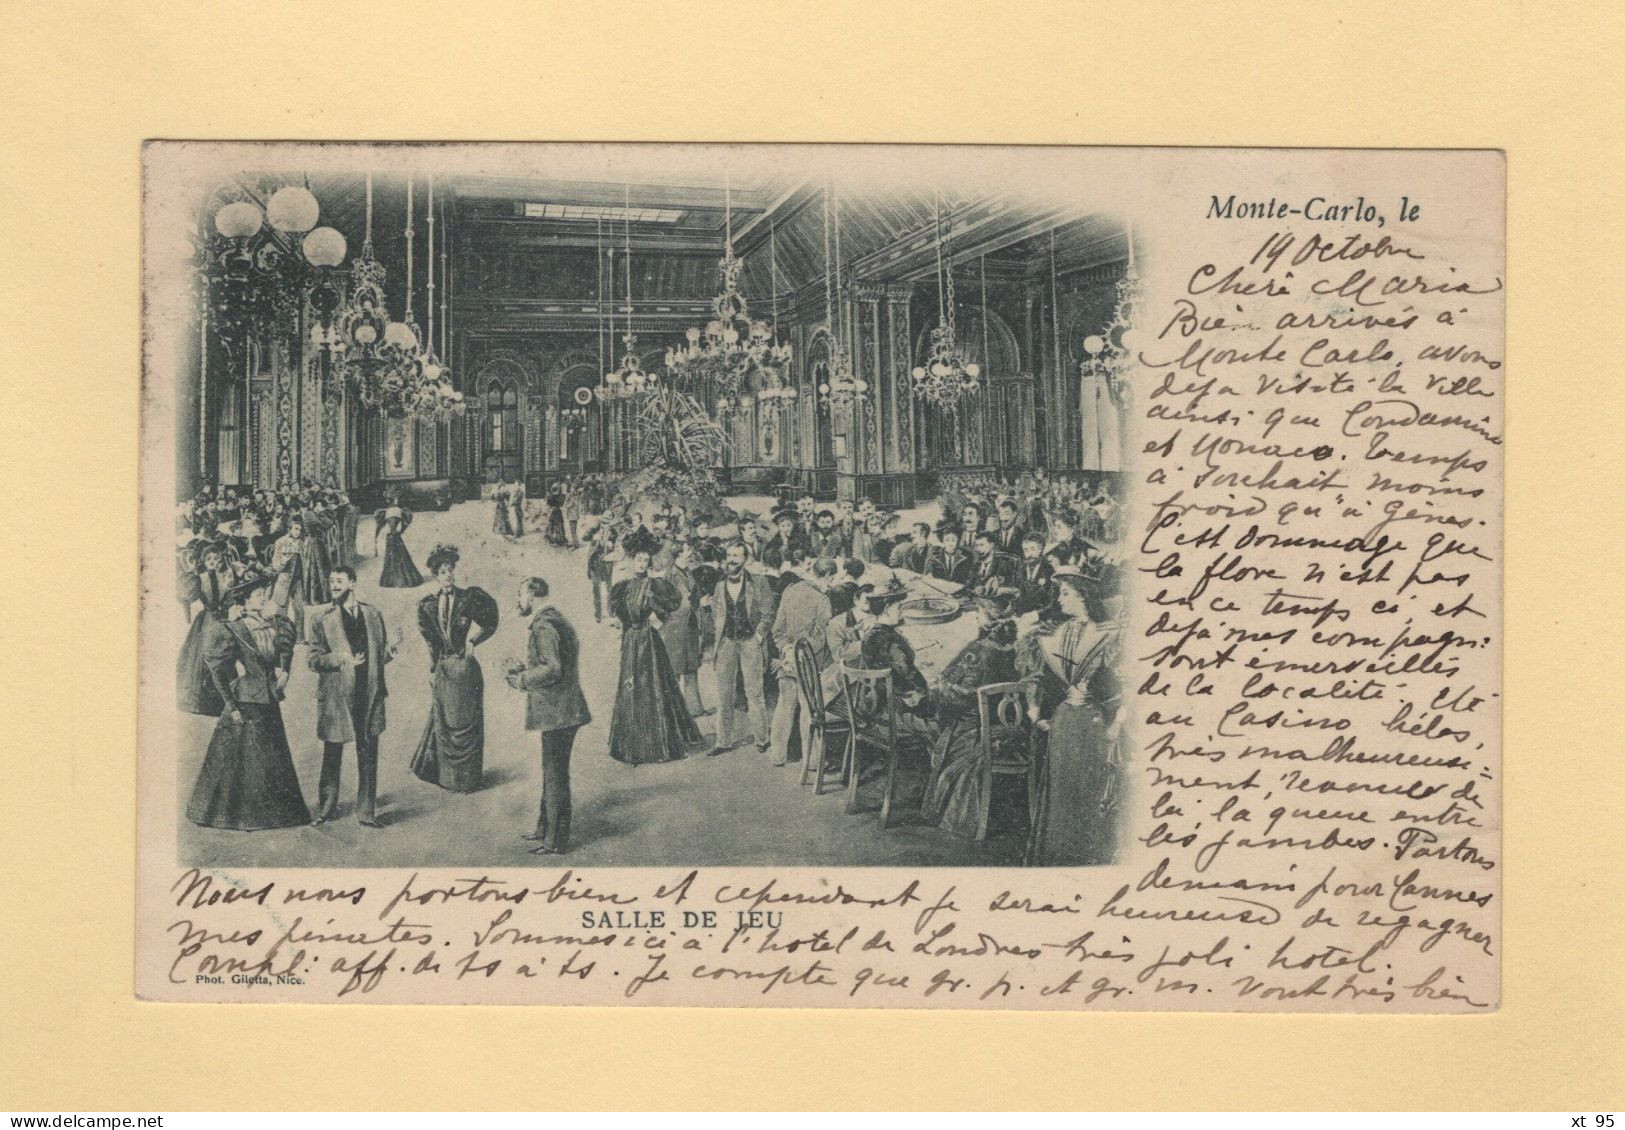 Monte-Carlo, le
19 Octobre
Cheré Maria
Bien arrivés à
Monte Carlo, avons
deja visité la ville
ainsi que Condamine
et Monaco. Temps
à souhait moins
froid qu'à Gènes.
C'est dommage que
la flore n'est pas
en ce temps ci, et
dejà mes compagn:
sont émerveillés
de la localité. Eté
au Casino hélas,
très malheureuse=
ment, revenus de
là, la queue entre
les jambes. Partons
demain pour Cannes
Nous nous portons bien et cependant je serai heureuse de regagner
SALLE DE JEU
mes pénates. Sommes ici à l'hotel de Londres très joli hotel.
Compl: aff. de ts à ts. Je compte que gr. p. et gr. m. vont très bien
Phot. Giletta, Nice.
delcampe.net
xt 95